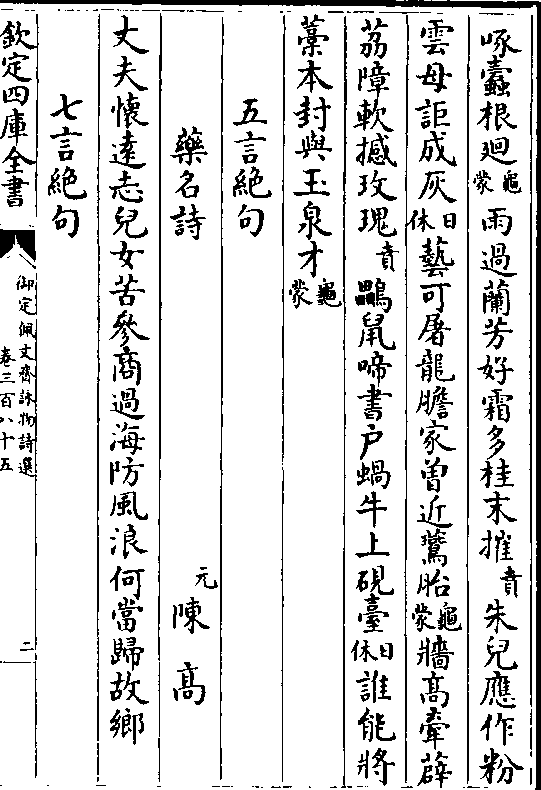 啄蠹根廻龜蒙雨過蘭芳好霜多桂末摧賁朱兒應作粉
雲母詎成灰日休藝可屠龍膽家曾近鷰胎龜蒙牆高牽薜
荔障軟撼玫瑰賁鸓鼠啼書户蝸牛上硯臺日休誰能將
藁本封與玉泉才龜蒙
五言絶句
藥名詩
元陳高
丈夫懷遠志兒女苦參商過海防風浪何當歸故鄉
七言絶句
欽定四庫全書
御定佩文齋詠物詩選
卷三百八十五
二